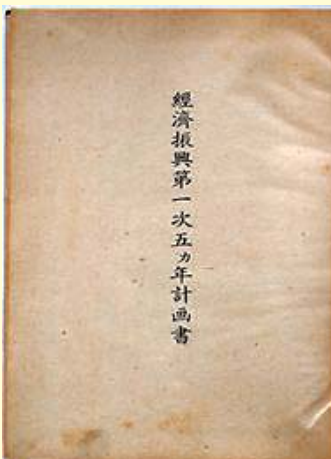 經濟振興第一次五ヵ年計画書